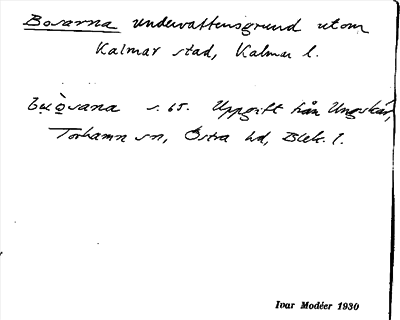 Bosarna undervattensgrund utom
Kalmar stad, Kalmar l.
bu̥o̥sana s. 65. Uppgift från Ungskär,
Torhamn sn, Östra hd, Blek. l.
Ivar Modéer 1930